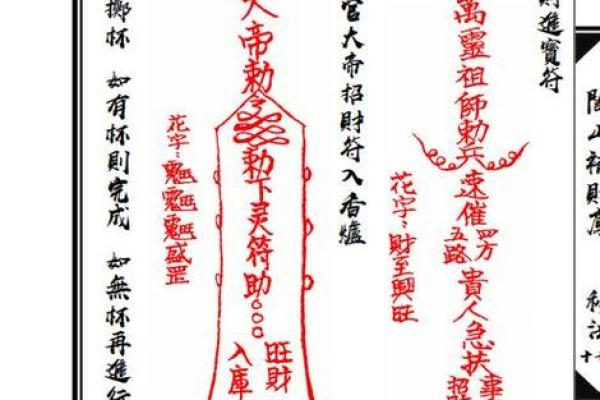 閭山補財庫 秘法
財進寶符
萬靈祖師勅兵速催四方五路貴人急扶事招
花字:財至興旺
官大帝招財符入香爐
帝勅令勅下灵符助○○○旺財入庫
花字:盛罡
擲杯 如有杯則完成 如無杯再進行